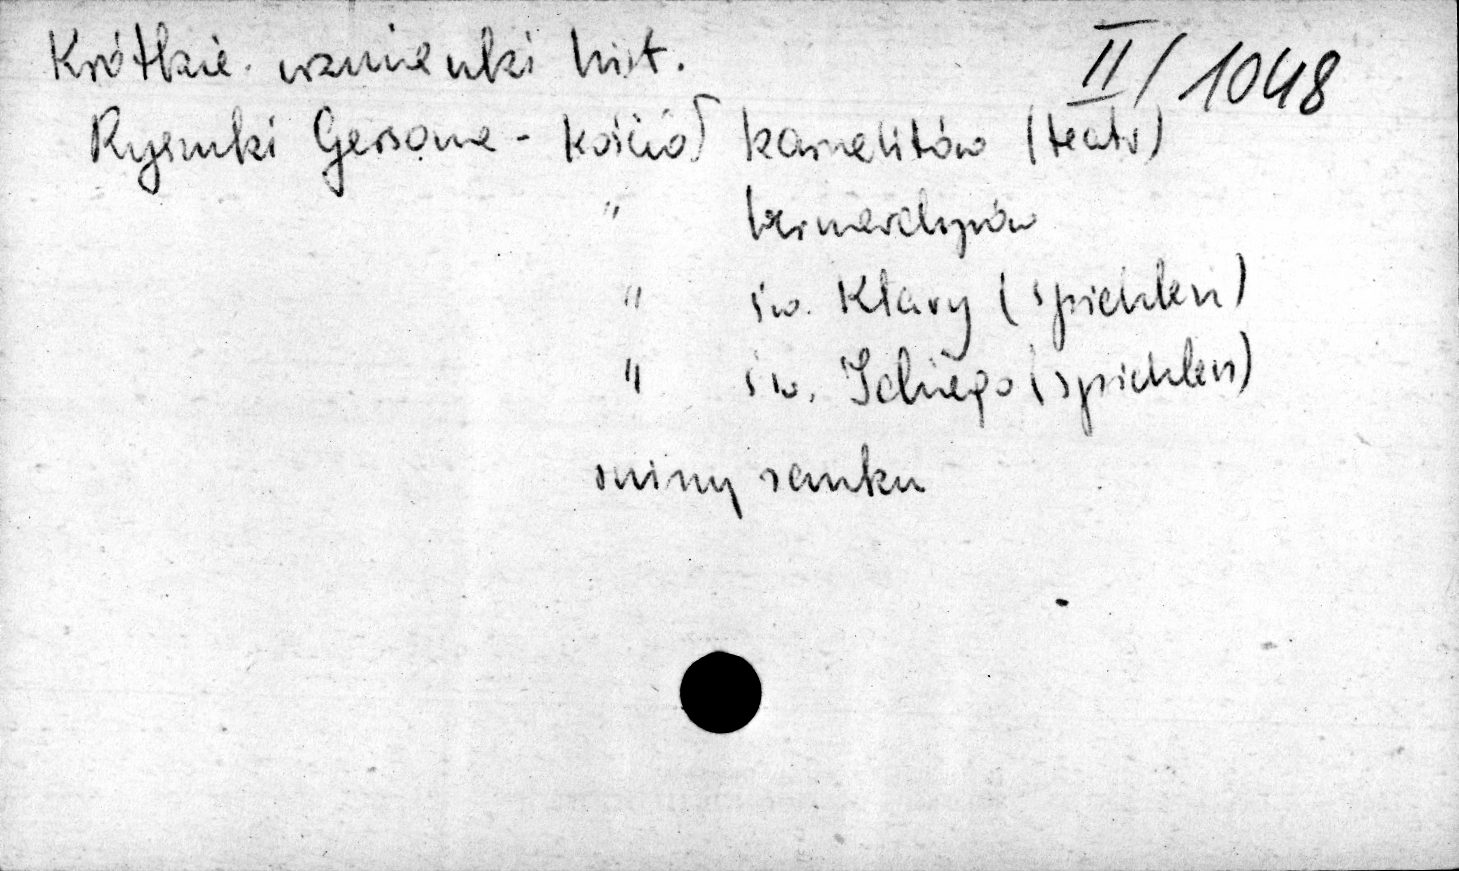 Krótkie wzmianki hist.
II/1048
Rysunki Gersona - kościoł karmelitów (teatr)
" bernardynów
" św. Klary (spichlerz)
" św. Idziego (spichlerz)
ruiny zamku